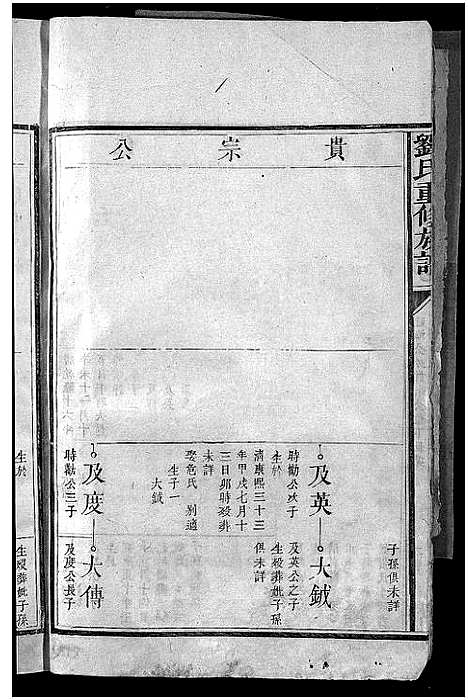 劉氏重修族譜
貴宗公
子孫俱未詳
及英
大鉞
時勳公次子
生於
清康熙三十三
年甲戌七月十
三日卯時歿葬
未詳
娶危氏 别適
生子一
大鉞
及英公之子
生歿葬妣子孫
俱未詳
及慶
大傳
時勳公三子
生於
及慶公長子
生歿葬妣子孫